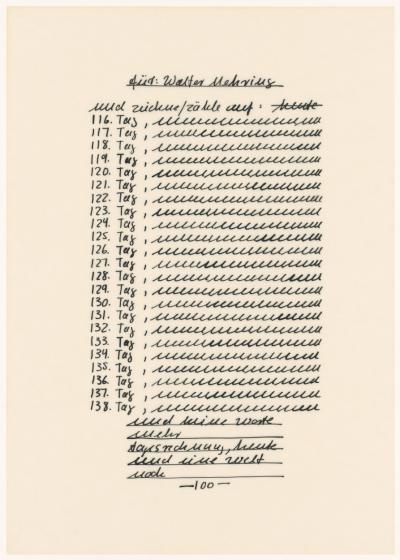 für: Walter Mehring
und zeichne/zähle auf: heute
116. Tag,
117. Tag,
118. Tag,
119. Tag,
120. Tag,
121. Tag,
122. Tag,
123. Tag,
124. Tag,
125. Tag,
126. Tag,
127. Tag,
128. Tag,
129. Tag,
130. Tag,
131. Tag,
132. Tag,
133. Tag,
134. Tag,
135. Tag,
136. Tag,
137. Tag,
138. Tag,
und keine worte
mehr
tagesrechnung, heute
und eine welt
noch
—100—